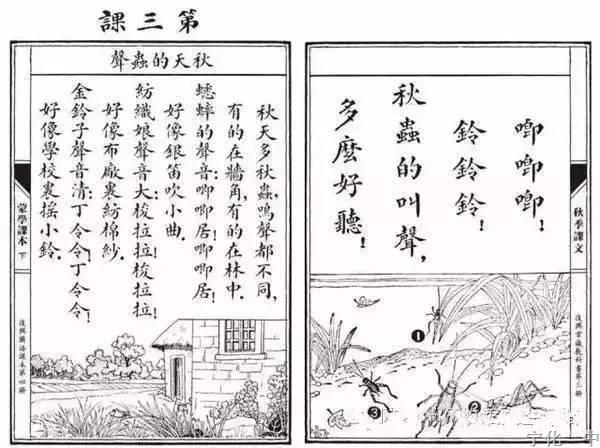 第三課
唧唧唧！
鈴鈴鈴！
秋蟲的叫聲，
多麼好聽！
秋季課文
復興常識教科書第三冊
❶
❷
❸
秋天的蟲聲
秋天多秋蟲，鳴聲都不同，
有的在牆角，有的在林中。
蟋蟀的聲音：唧唧居！唧唧居！
好像銀笛吹小曲。
紡織娘聲音大：梭拉拉！梭拉拉！
好像布廠裏紡棉紗。
金鈴子聲音清：丁令令！丁令令！
好像學校裏搖小鈴。
蒙學課本 下
復興國語課本第四冊